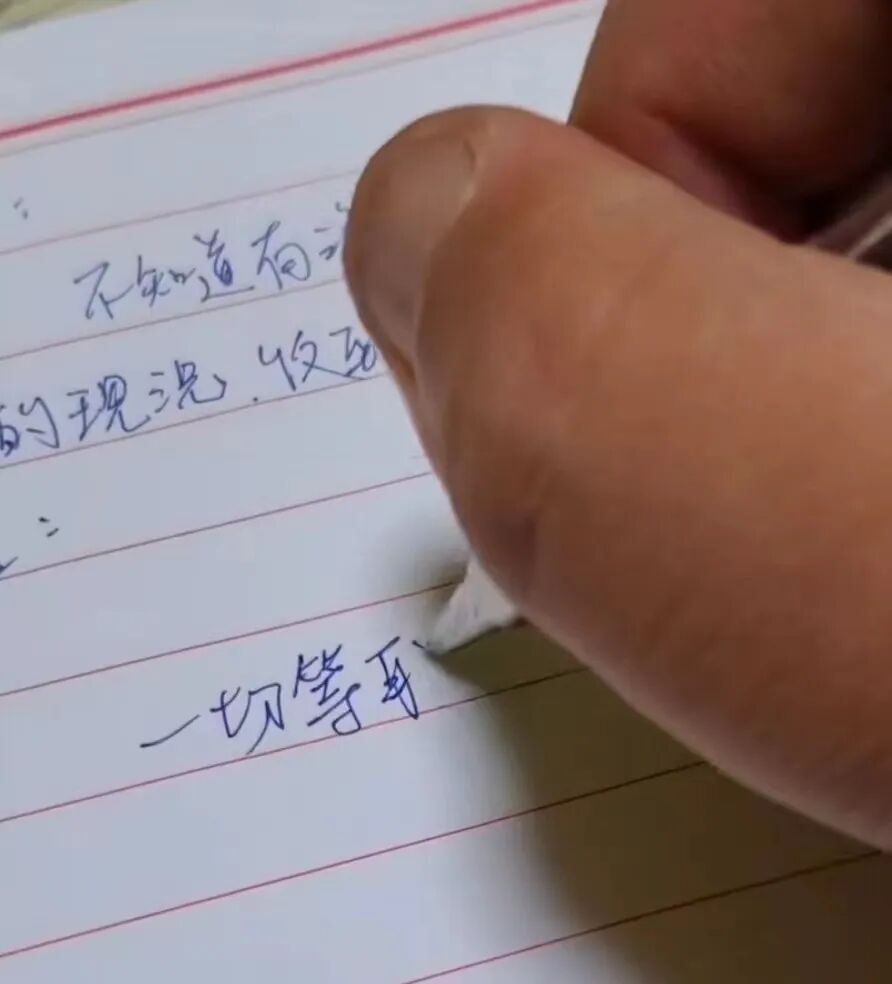 :
不知道有
的现况.收到
:
一切等